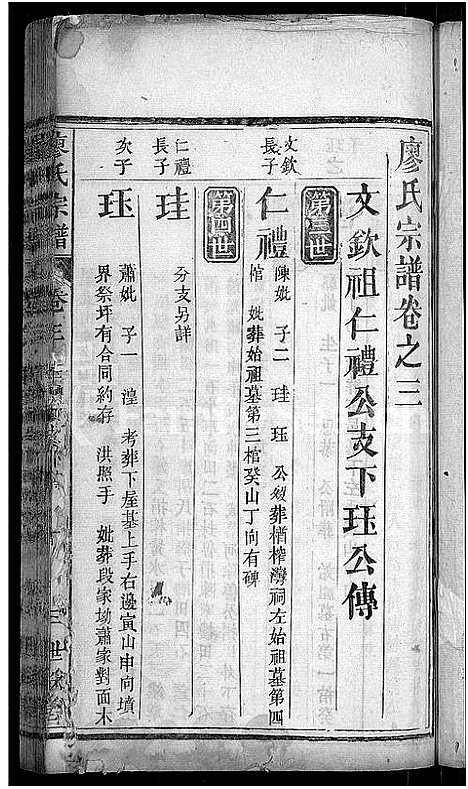 廖氏宗譜卷之三
文欽祖仁禮公支下珏公傳
第三世
文欽
長子
仁禮
陳妣 子二 珪 珏 公歿葬楢榨灣祠左始祖墓第四
棺 妣葬始祖墓第三棺癸山丁向有碑
第四世
仁禮
長子
珪
分支另詳
次子
珏
蕭妣 子一 湟 考葬下屋基上手右邊寅山申向墳
界祭坪有合同約存 洪照手 妣葬段家坳蕭家對面木
氏宗譜
卷三
三世